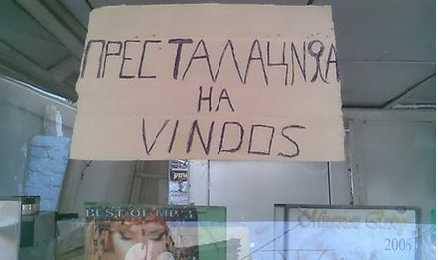 ПРЕСТАЛАЦИЯА
НА
VINDOS
BEST OF MP3
2005